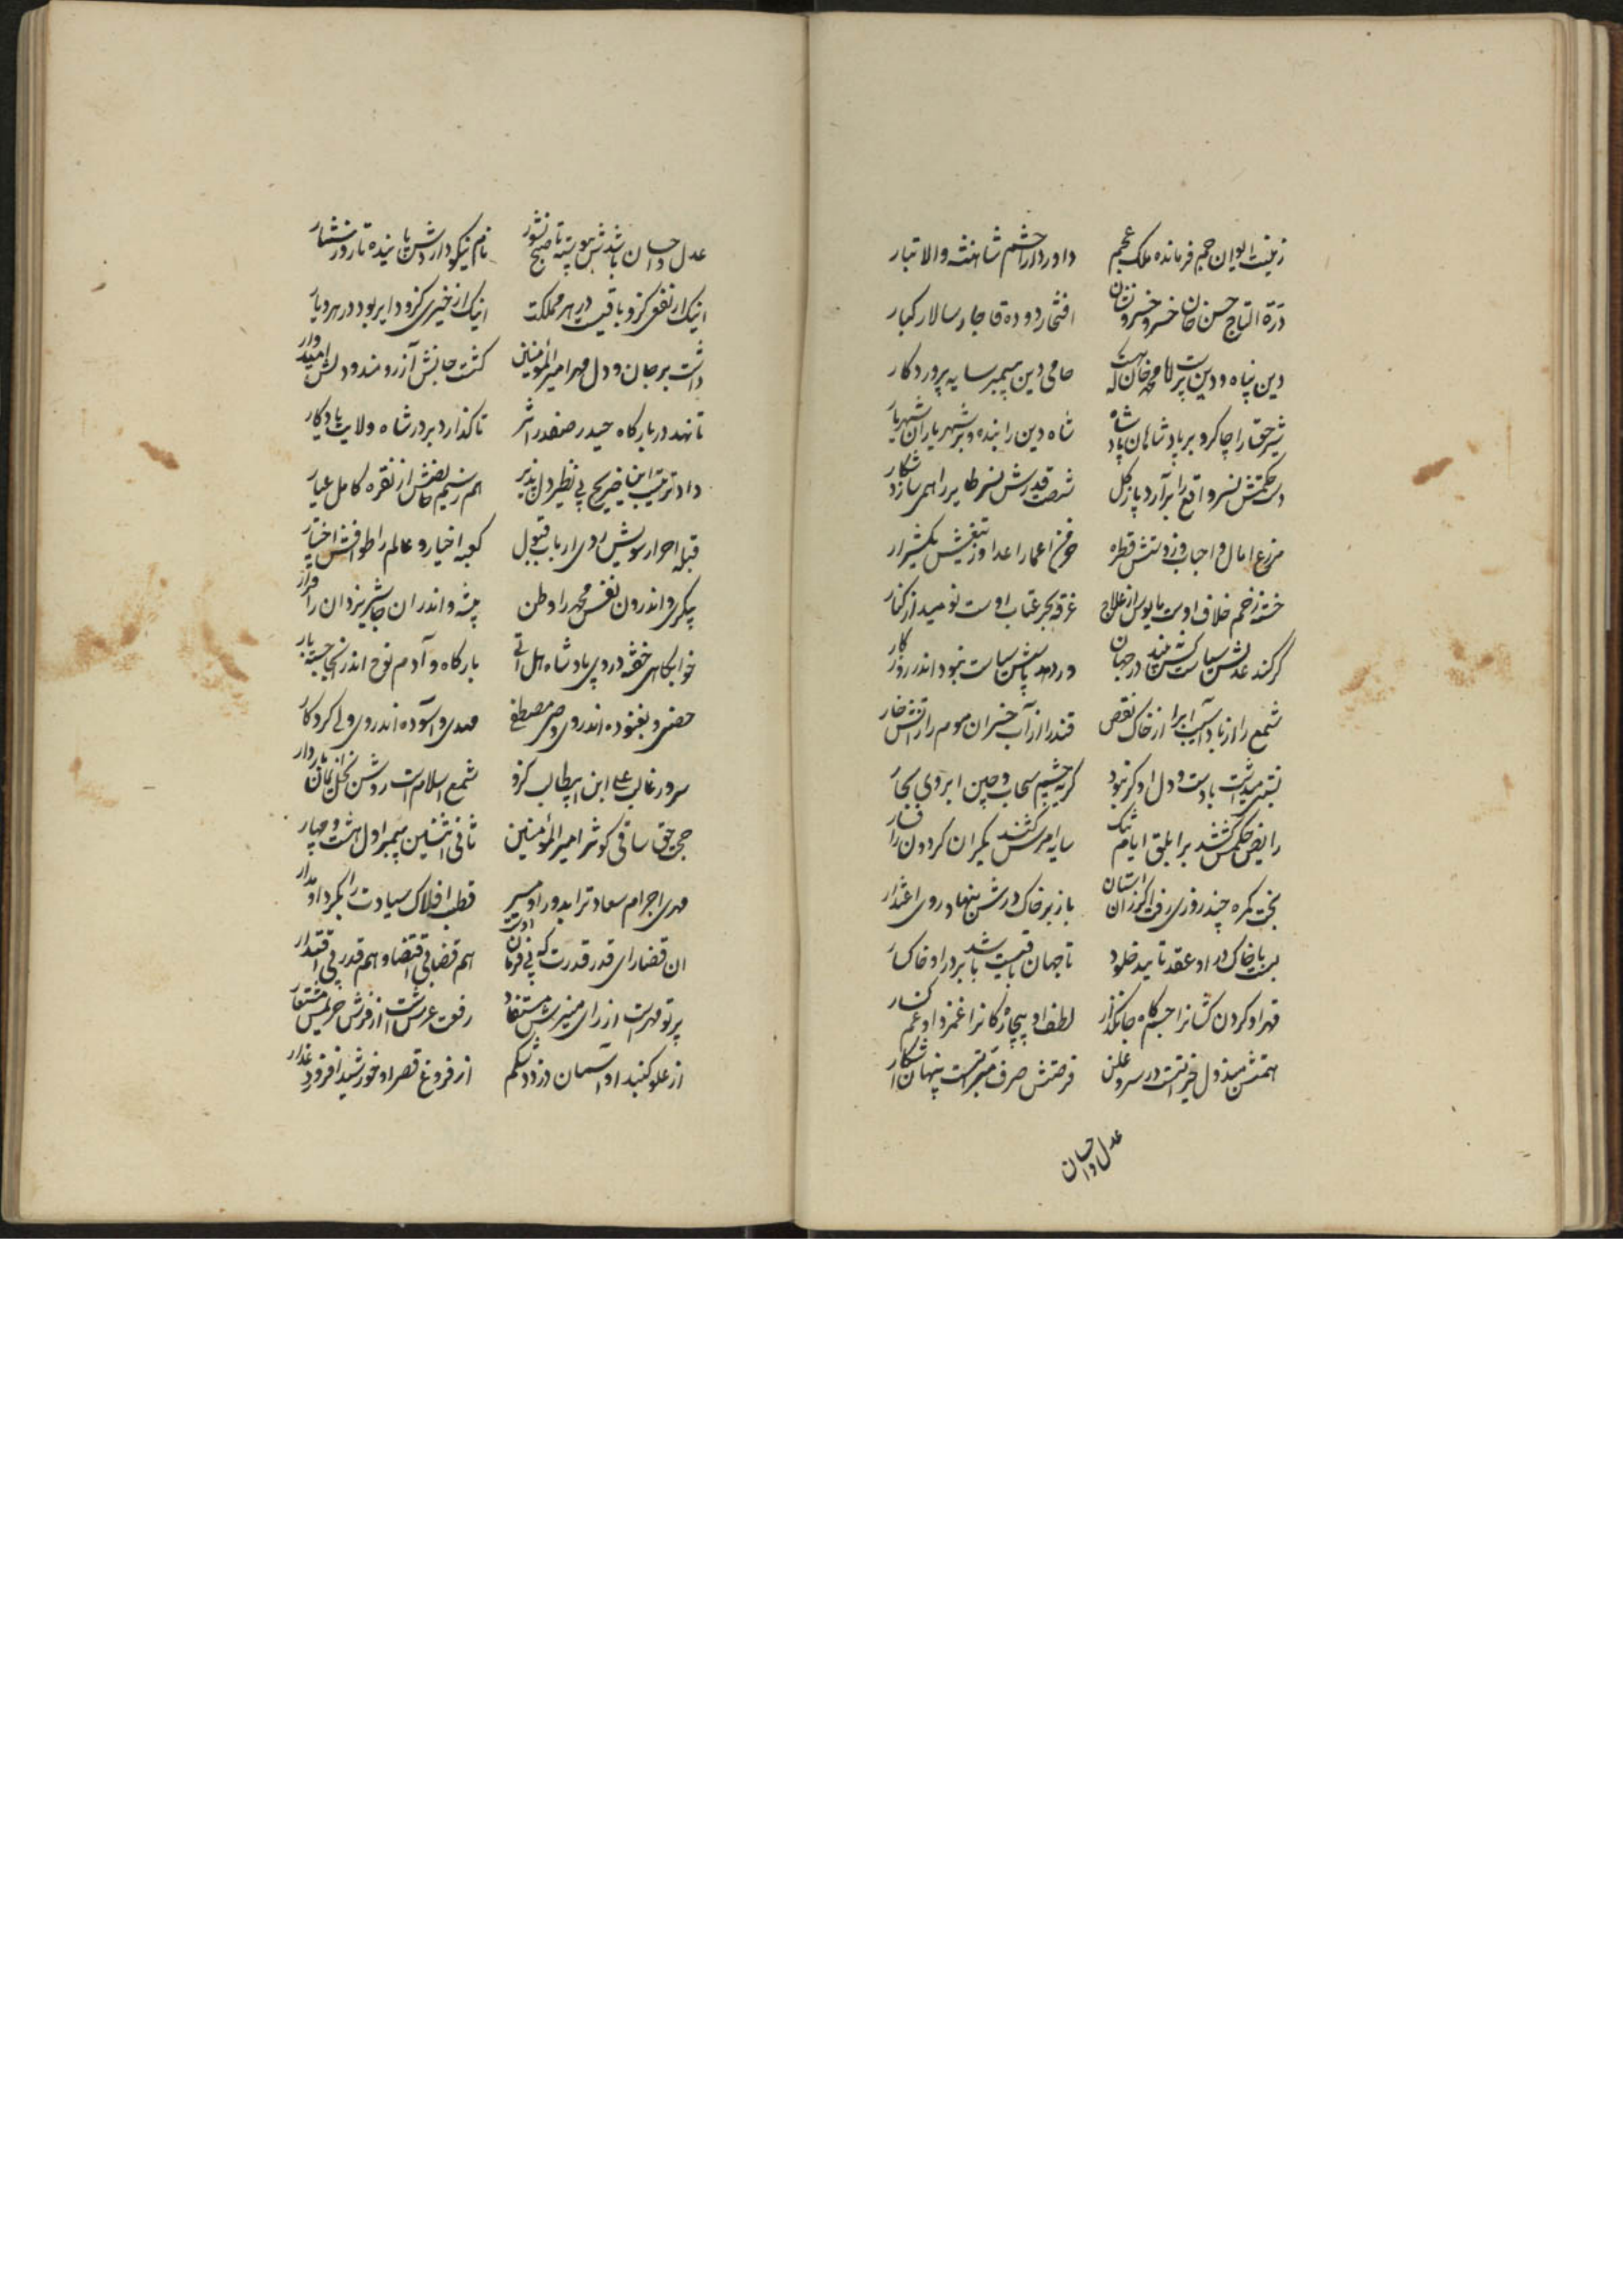 زینت ایوان جم فرمانده ملک عجم داور دارا حشم شاهنشه والا تبار
درة التاج حسن خان خسرو خسرو نشان افتخار دوده قاجار سالار کبار
دین پناه و دین پرست محمد خان حامی دین پیمبر سایه پروردکار
شیر حق را چاکر و بر پادشاهان پادشاه شاه دین را بنده و بر شهریاران شهریار
دست حکمتش نسر واقع را برآرد باز کل شصت قدرش نسر طایر را همی سازد شکار
مزرع امال و احباب و زدستش قطره خرمن اعمار اعدا وز تیغش یکشرار
خسته زخم خلاف اوست مایوس از علاج غرقه بحر عتاب اوست نومید از کنار
کر کند عدلش سیاست در جهان ور دهد پاسش سیاست نبود اندر روز کار
شمع را از باد آسیب ابرا از خاک نقص قند را از آب خسران موم را از آتش خار
نسبتی میداشت با دست و دل او کر نبود کریه چشم سحاب و چین ابروی بحار
رایض حکمش کشد بر ابلق ایام تنک سایه امرش کند یکران کردون را فسار
بخت کمره چند روزی رفت اکر زان استان باز بر خاک درش بنهاد روی اعتذار
بست با خاک در او عقد تایید خلود تا جهان باقیست باشد بر در او خاکسار
قهر او کردن کشانرا جسم کاه جانکذار لطف او بیچارکانرا غمزد او غمکسار
همتش مبذول خیراتست در سر و علن فرصتش صرف مبراتست پنهان آشکار
عدل و احسان
عدل و احسان باشدش پیوسته تا صبح نشور نام نیکو داردش پاینده تا روز شمار
اینک ار نفعی کزو باقیست در هر مملکت اینک از خیری کزو دایر بود در هر دیار
داشت بر جان و دل مهر امیرالمؤمنین کشت جانش آرزومند و دلش امیدوار
تا نهد در بارکاه حیدر صفدر اثر تا کذارد بر در شاه ولایت یادکار
داد ترتیب این ضریح بی نظیر دلپذیر هم ز سیم از نقره کامل عیار
قبله احرار سویش روی ارباب قبول کعبه اخیار و عالم را طوافش اختیار
پیکری و اندرون نفس محمد را وطن بیشه و اندر ان جا شیر یزدان را قرار
خوابکاهی خفته در وی پادشاه هل اتی بارکاه و آدم نوح اندر انجا جسته بار
حصنی و بغنوده اندر وی وصی مصطفی مهدی و آسوده اندر وی ولی کردکار
سرور غالب علی ابن ابیطالب کزو شمع اسلامست روشن نخل ایمان باردار
حجی حق ساقی کوثر امیرالمؤمنین ثانی اثنین پیمبر اول هشت و چهار
مهدی اجرام سعادترا بدور او مسیر قطب افلاک سیادت را بکرد او مدار
ان قضا رای قدر قدرت که بی فرمان اوست هم قضا بی اقتضا و هم قدر بی اقتدار
پرتو مهرست از رای منیرش مستفاد رفعت عرشست از فرش حریمش مستعار
از علو کنبد او آسمان دزدد شکم از فروغ قصر او خورشید افروزد عذار